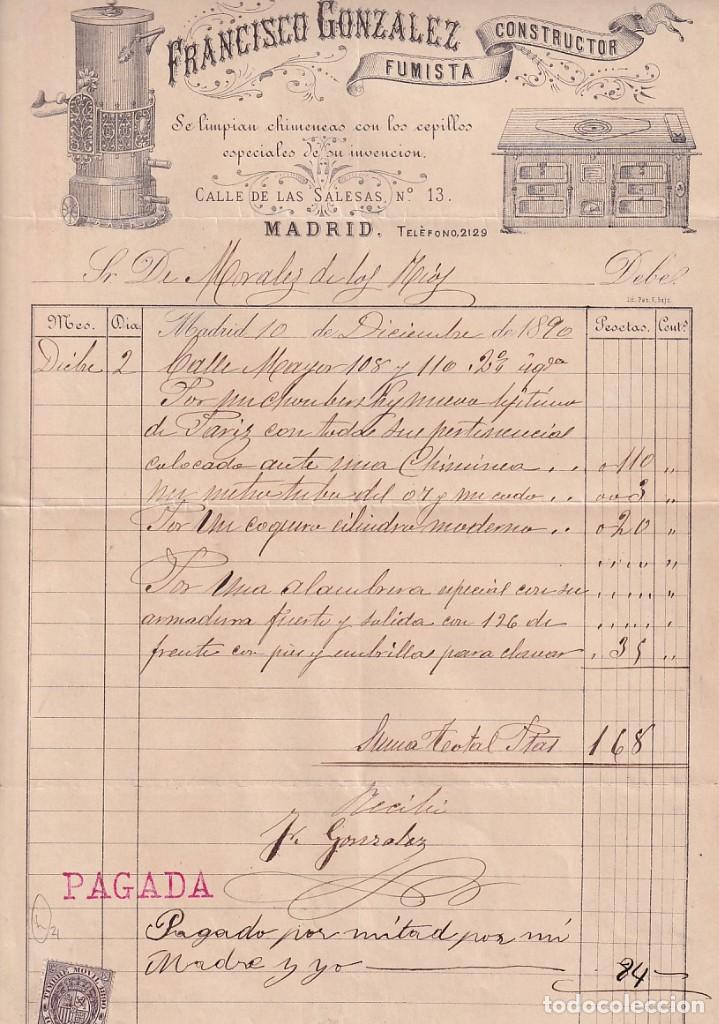 FRANCISCO GONZALEZ
CONSTRUCTOR
FUMISTA
Se limpian chimeneas con los cepillos
especiales de su invencion.
CALLE DE LAS SALESAS, Nº 13.
MADRID. TELÈFONO, 2129
Sr. De Morales de los Rios Debe
Mes. Dia Madrid 10 de Diciembre de 1890 Pesetas. Centº
Dicbre 2 Calle Mayor 108 y 110 2º
Por un choubershy nuevo lejitimo
de Paris con todas sus pertinencias
colocado ante una Chiminea .. 110 "
un metro tubo del 07 y un codo .. 3 "
Por Un coquero cilindro moderno .. 20 "
Por Una alambrera especial con su
armadura fuerte y solida con 126 de
frente con pies y embrillas para clavar 35 "
Suma Total Ptas 168
Recibi
F. Gonzalez
PAGADA
Pagado por mitad por mi
Madre y yo 84
TIMBRE MOVIL 1890
todocoleccion